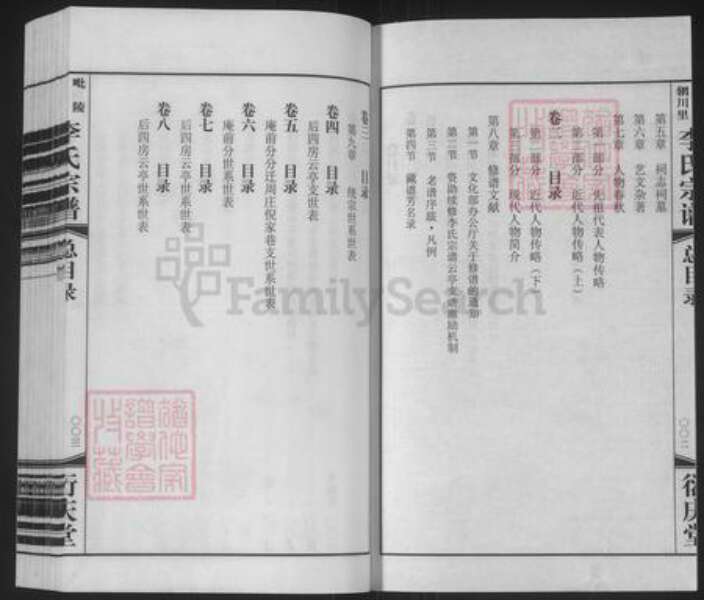 李氏宗谱
总目录
第五章 祠志祠墓
第六章 艺文杂著
第七章 人物春秋
第一部分 先祖代表人物传略
第二部分 近代人物传略（上）
卷二 目录
第二部分 近代人物传略（下）
第三部分 现代人物简介
第八章 修谱文献
第一节 文化部办公厅关于修谱的通知
第二节 资助续修李氏宗谱云亭支谱激励机制
第三节 老谱序跋·凡例
第四节 藏谱芳名录
卷三 目录
第九章 统宗世系世表
卷四 目录
后四房云亭支世表
卷五 目录
庵前分分迁周庄倪家巷支世系世表
卷六 目录
庵前分世系世表
卷七 目录
后四房云亭世系世表
卷八 目录
后四房云亭世系世表
毗陵
李氏宗谱
总目录
〇〇三
衍庆堂
FamilySearch